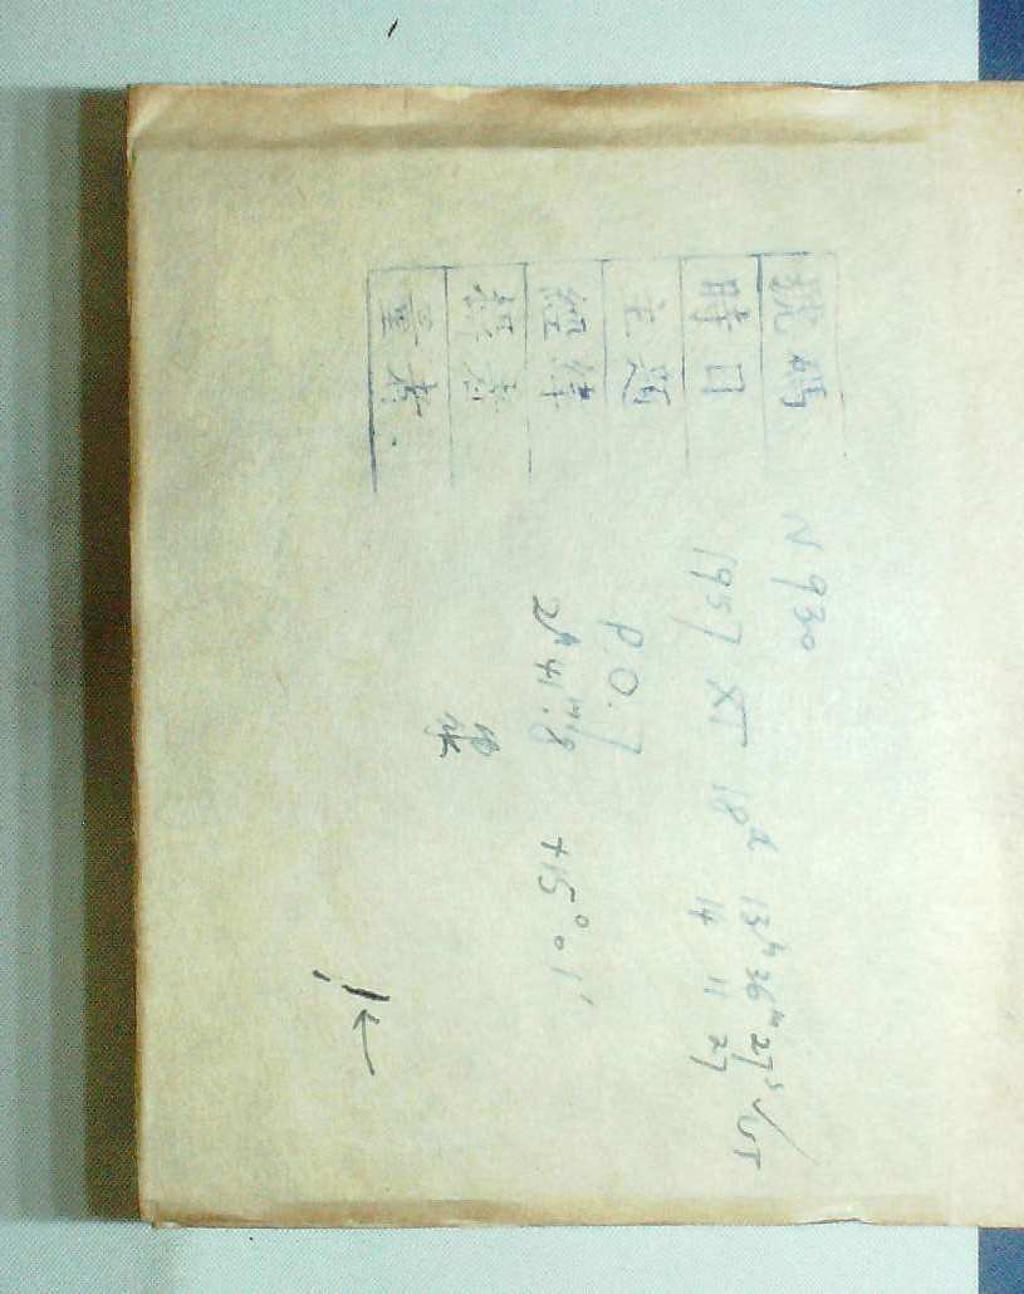 號碼 N 930
時日 1957 XI 18d 13h 36m 27s UT
14 11 27
主題 P.O. 7
經緯 2h 41m.8 +15° 0.1'
報告 張